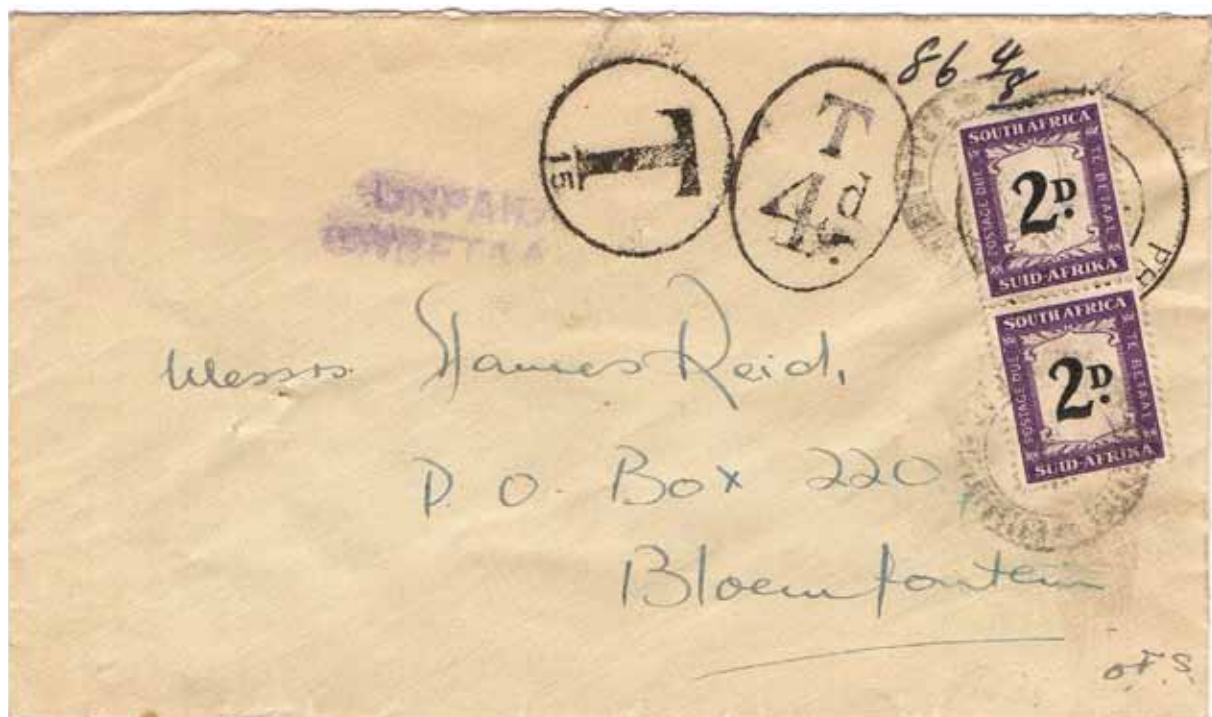 86 4/8
T
15
T
4d
UNPAID
SOUTH AFRICA
POSTAGE DUE
2D.
TE BETAAL
SUID-AFRIKA
SOUTH AFRICA
POSTAGE DUE
2D.
TE BETAAL
SUID-AFRIKA
Messrs James Reid,
P. O. Box 220,
Bloemfontein
O.F.S.